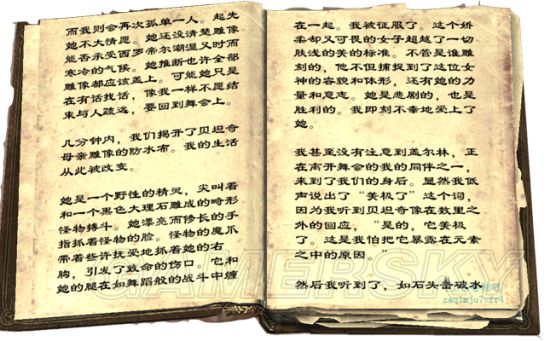 而我则会再次孤单一人。起先
她不大情愿。她还没清楚雕像
能否承受西罗帝尔潮湿又时而
寒冷的气候。她推断也许全部
雕像都应该盖上。可能她只是
在有话找话，像我一样不愿结
束与人疏远，要回到舞会上。
几分钟内，我们揭开了贝坦奇
母亲雕像的防水布。我的生活
从此被改变。
她是一个野性的精灵，尖叫着
和一个黑色大理石雕成的畸形
怪物搏斗。她漂亮而修长的手
指抓着怪物的脸。怪物的魔爪
带着些许抚爱地抓着她的右
胸，引发了致命的伤口。它和
她的腿在如舞蹈般的战斗中缠
在一起。我被征服了。这个娇
柔却又可畏的女子超越了一切
肤浅的美的标准。不管是谁雕
刻的，他不但捕捉到了这位女
神的容貌和体形，还有她的力
量和意志。她是悲剧的，也是
胜利的。我即刻不幸地爱上了
她。
我甚至没有注意到盖尔林，正
在离开舞会的我的同伴之一，
来到了我们的身后。显然我低
声说出了“美极了”这个词，
因为我听到贝坦奇像在数里之
外的回应，“是的，它美极
了。这是我怕把它暴露在元素
之中的原因。”
然后我听到了，如石头击破水
GAMERSKY
zsq1mju7vfr4